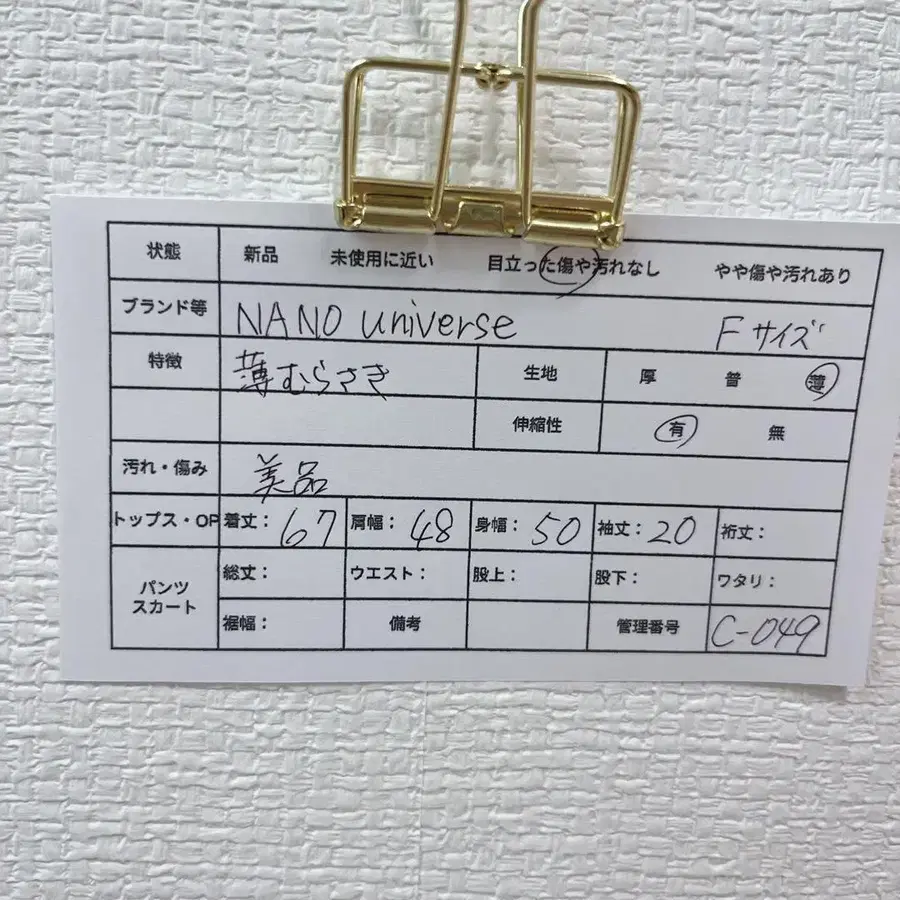 状態 新品 未使用に近い 目立った傷や汚れなし やや傷や汚れあり
ブランド等 NANO universe Fサイズ
特徴 薄むらさき 生地 厚 普 薄
伸縮性 有 無
汚れ・傷み 美品
トップス・OP 着丈: 67 肩幅: 48 身幅: 50 袖丈: 20 裄丈:
パンツ スカート 総丈: ウエスト: 股上: 股下: ワタリ:
裾幅: 備考 管理番号 C-049